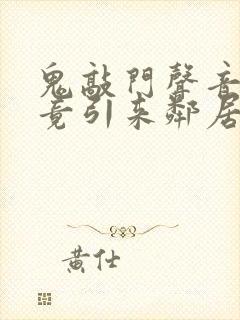 鬼敲門聲音
竟引来鄰居
黄仕